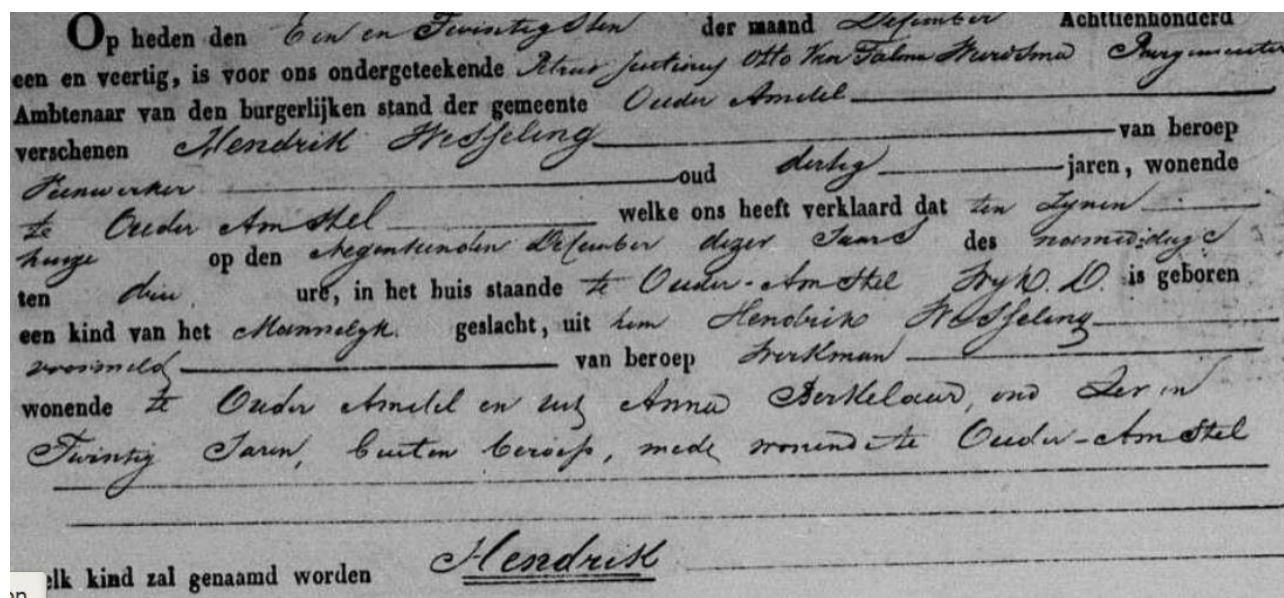 Op heden den Een en Twintigsten der maand December Achttienhonderd
een en veertig, is voor ons ondergeteekende Petrus Justinus Otto Van Talma Burgemeester
Ambtenaar van den burgerlijken stand der gemeente Ouder Amstel
verschenen Hendrik Wesseling van beroep
Veenwerker oud dertig jaren, wonende
te Ouder Amstel welke ons heeft verklaard dat ten zynen
huize op den Negentienden December dezer Jaars des namiddags
ten drie ure, in het huis staande te Ouder-Amstel Wyk D. is geboren
een kind van het Mannelyk geslacht, uit hem Hendrik Wesseling
voormeld van beroep Werkman
wonende te Ouder Amstel en uit Anna Berkelaar, oud en
Twintig Jaren, buiten beroep, mede wonende te Ouder-Amstel
elk kind zal genaamd worden Hendrik